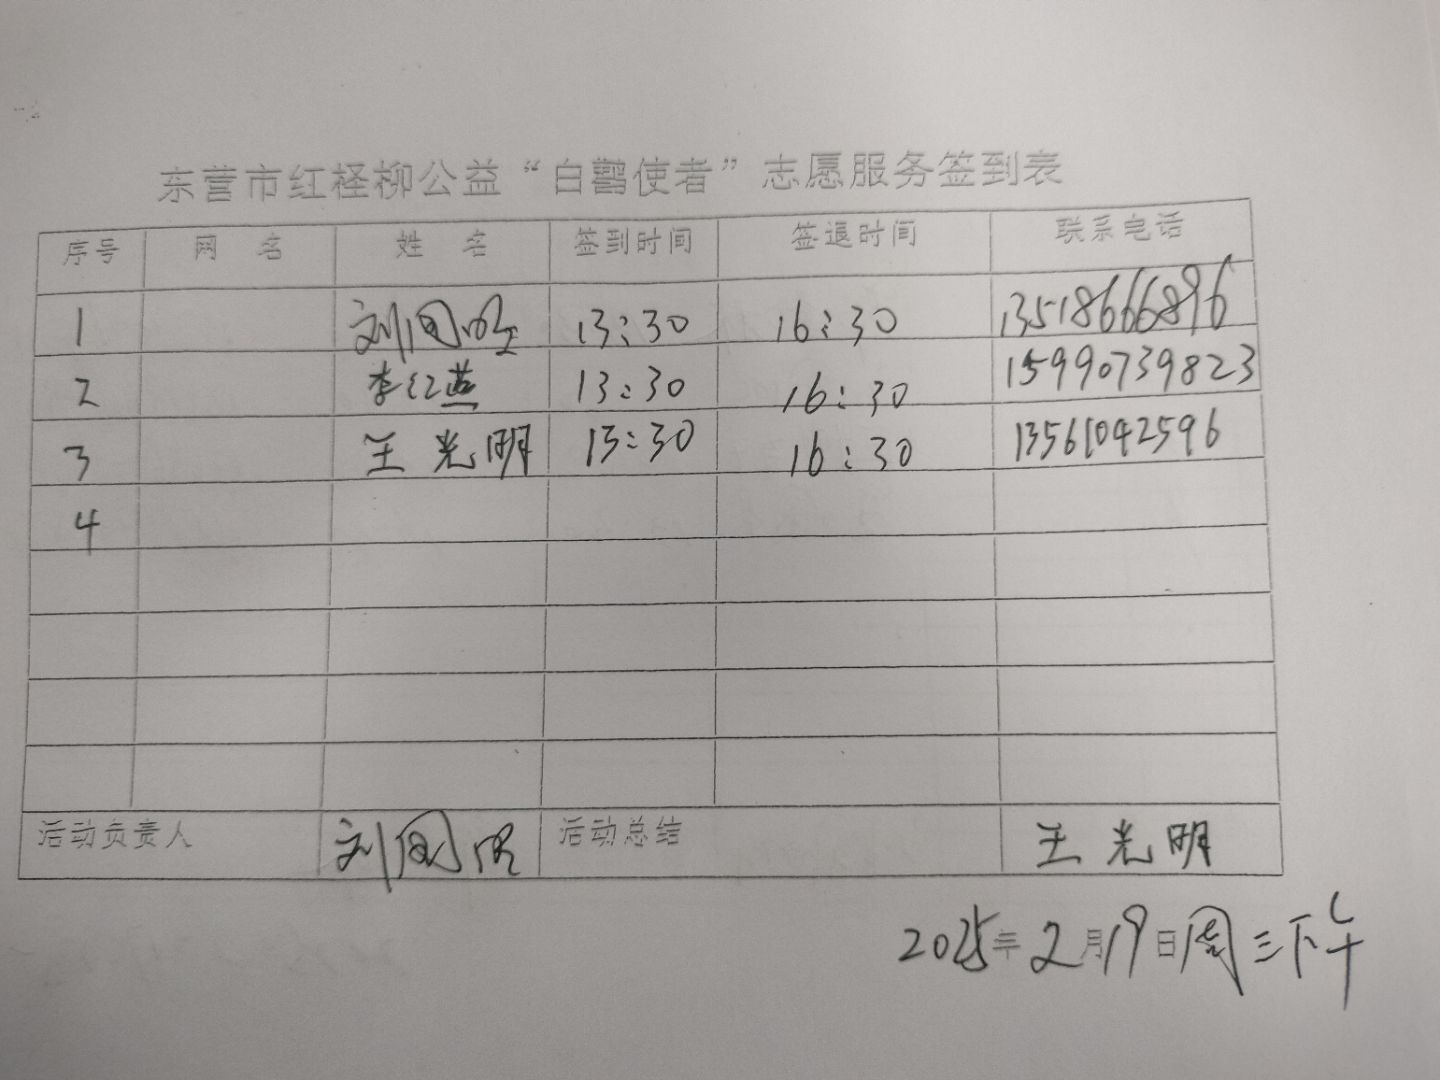 东营市红柽柳公益“白鹳使者”志愿服务签到表
序号 网 名 姓 名 签到时间 签退时间 联系电话
1 刘国 13:30 16:30 13518666896
2 李红燕 13:30 16:30 15990739823
3 王光明 13:30 16:30 13561042596
4
活动负责人 刘国 活动总结 王光明
2025年2月19日周三下午